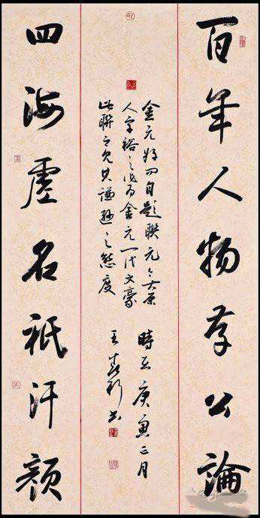 百年人物存公論
金元好問自題聯元々太原
人字裕之為金元一代文豪
此聯足見其謙遜之態度
時在庚寅三月
四海虛名祇汗顏